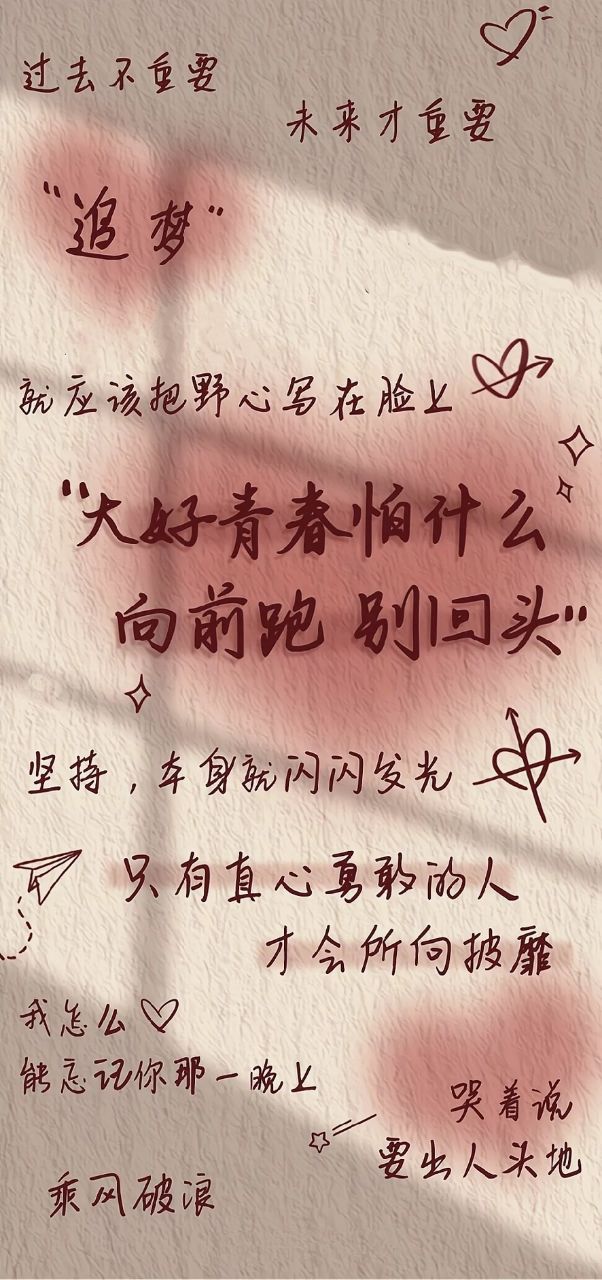 过去不重要
未来才重要
"追梦"
就应该把野心写在脸上
"大好青春怕什么
向前跑 别回头"
坚持，本身就闪闪发光
只有真心勇敢的人
才会所向披靡
我怎么
能忘记你那一晚上
哭着说
要出人头地
乘风破浪